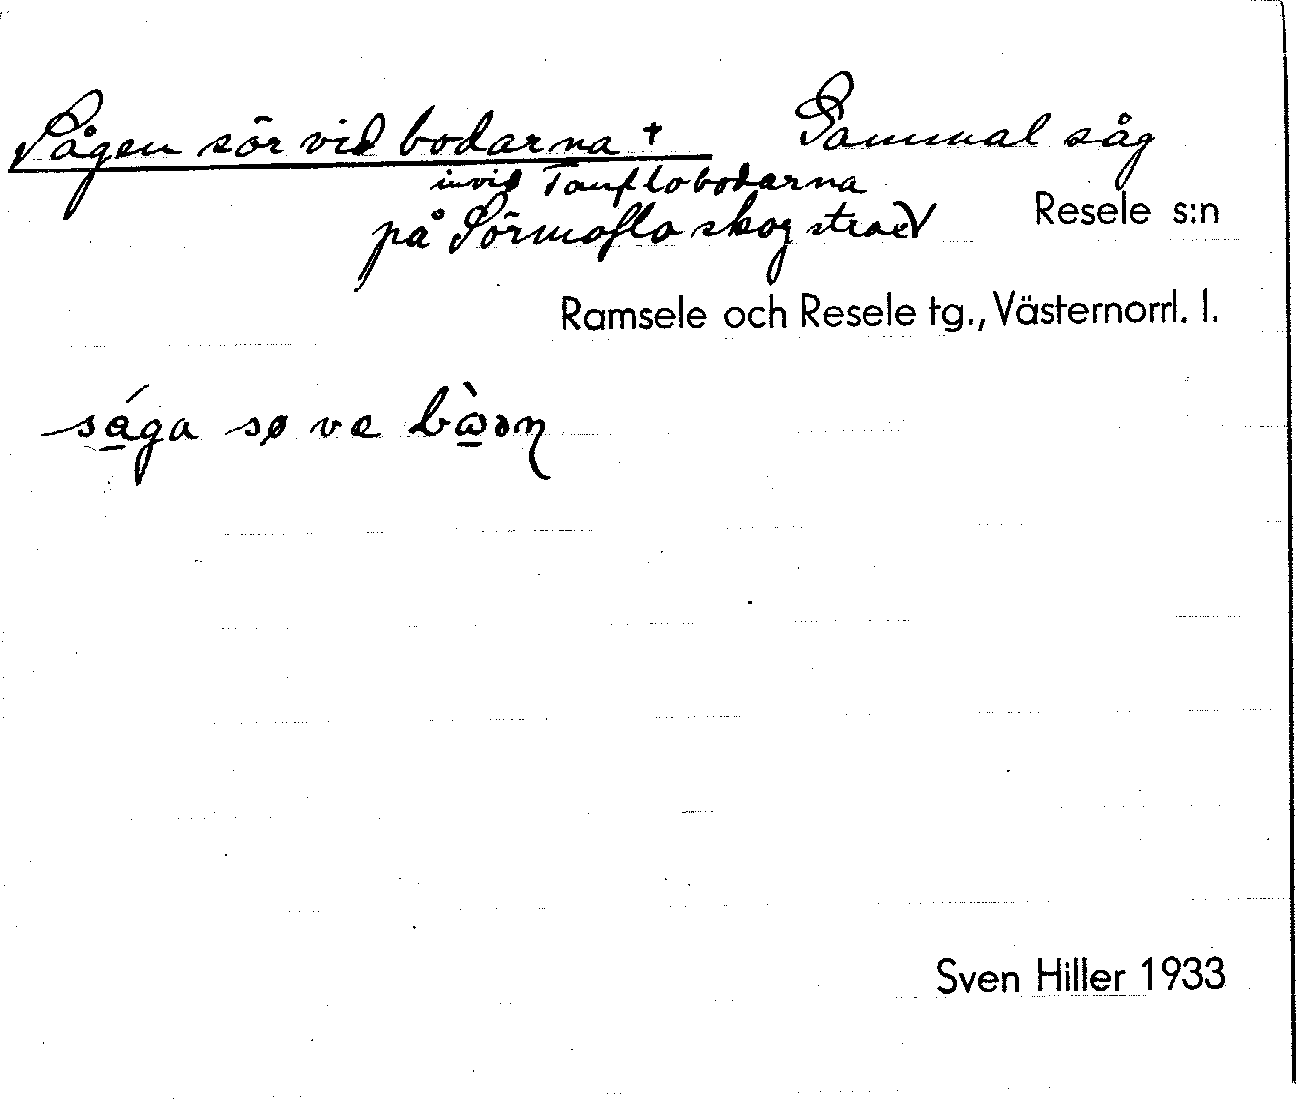 Sågen sör vid bodarna † Gammal såg
invid Tanflobodarna
på Sörmoflo skog strax V Resele s:n
Ramsele och Resele tg., Västernorrl. l.
sága sø ve
Sven Hiller 1933